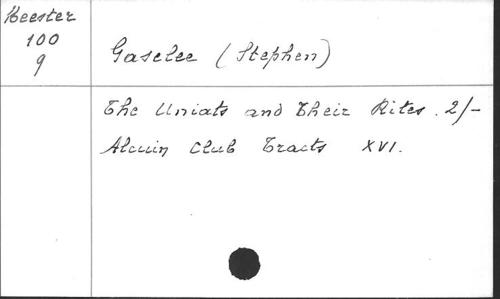 Keester
100
9
Gaselee (Stephen)
The Uniats and Their Rites. 2/-
Alcuin Club Tracts XVI.